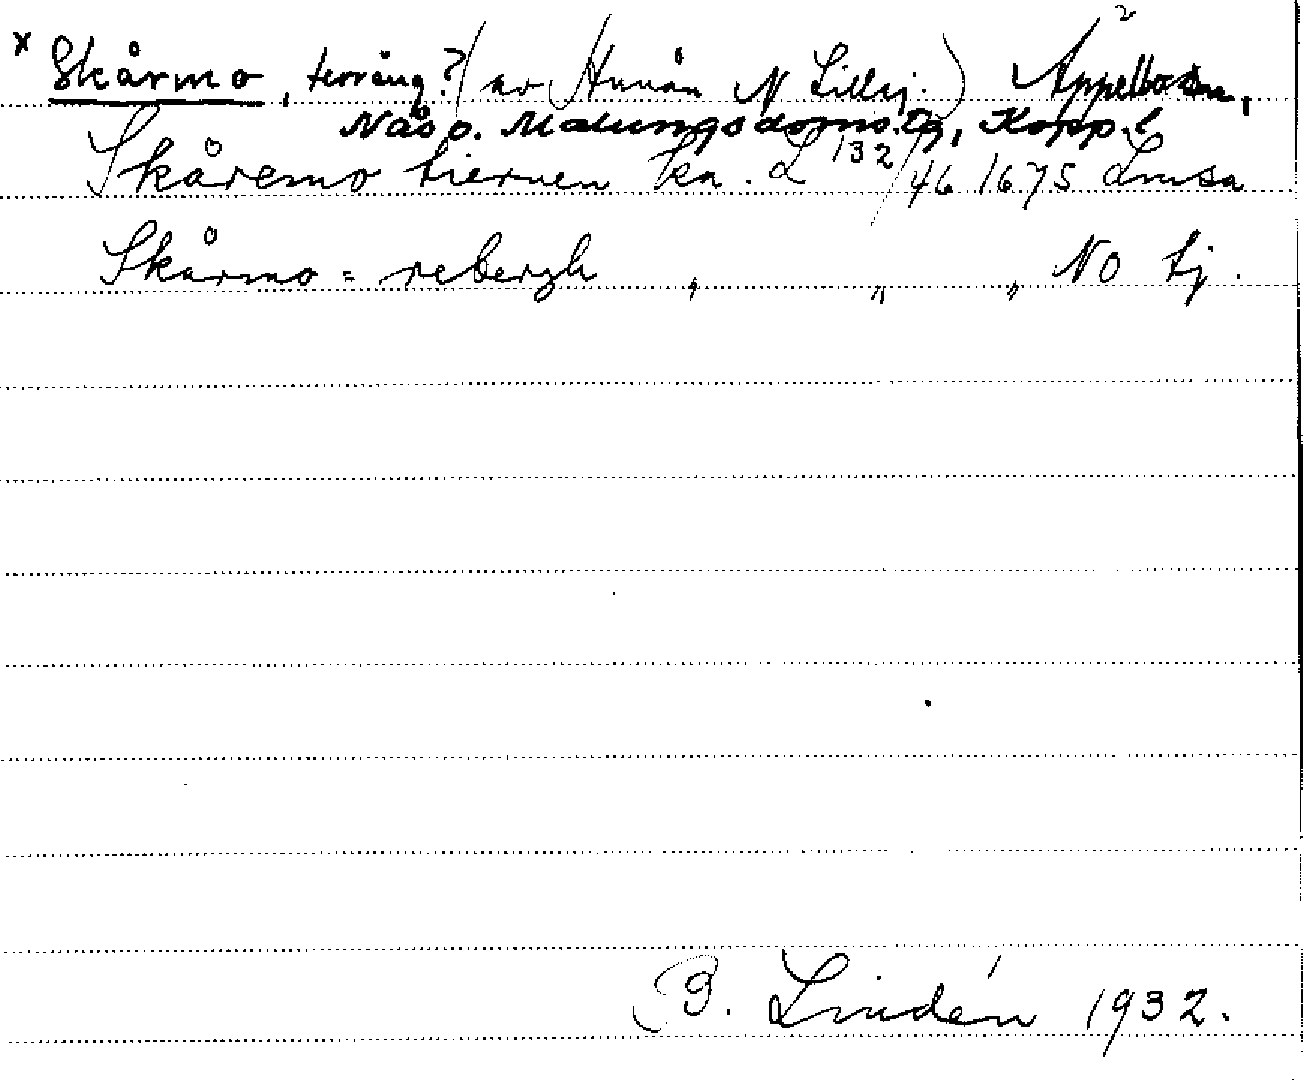 x Skårmo, terräng? (av Hunån N Lillsj.) Äppelbo sn,
Nås o. Malungs doms.tg, Kopp. l
Skåremo tiernen ka. L 132/46 1675 Limsa
Skårmo = rebergh " " " NO tj.
B. Lindén 1932.